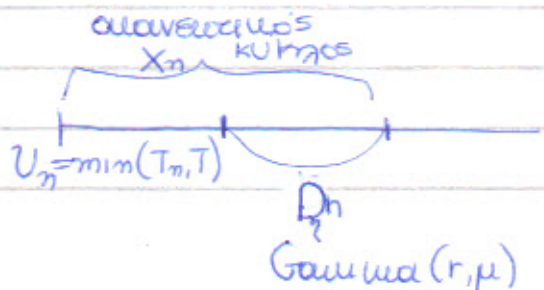 ανανεωτικός
κύκλος
Xₙ
Uₙ=min(Tₙ,T)
Dₙ
Gamma(r,μ)